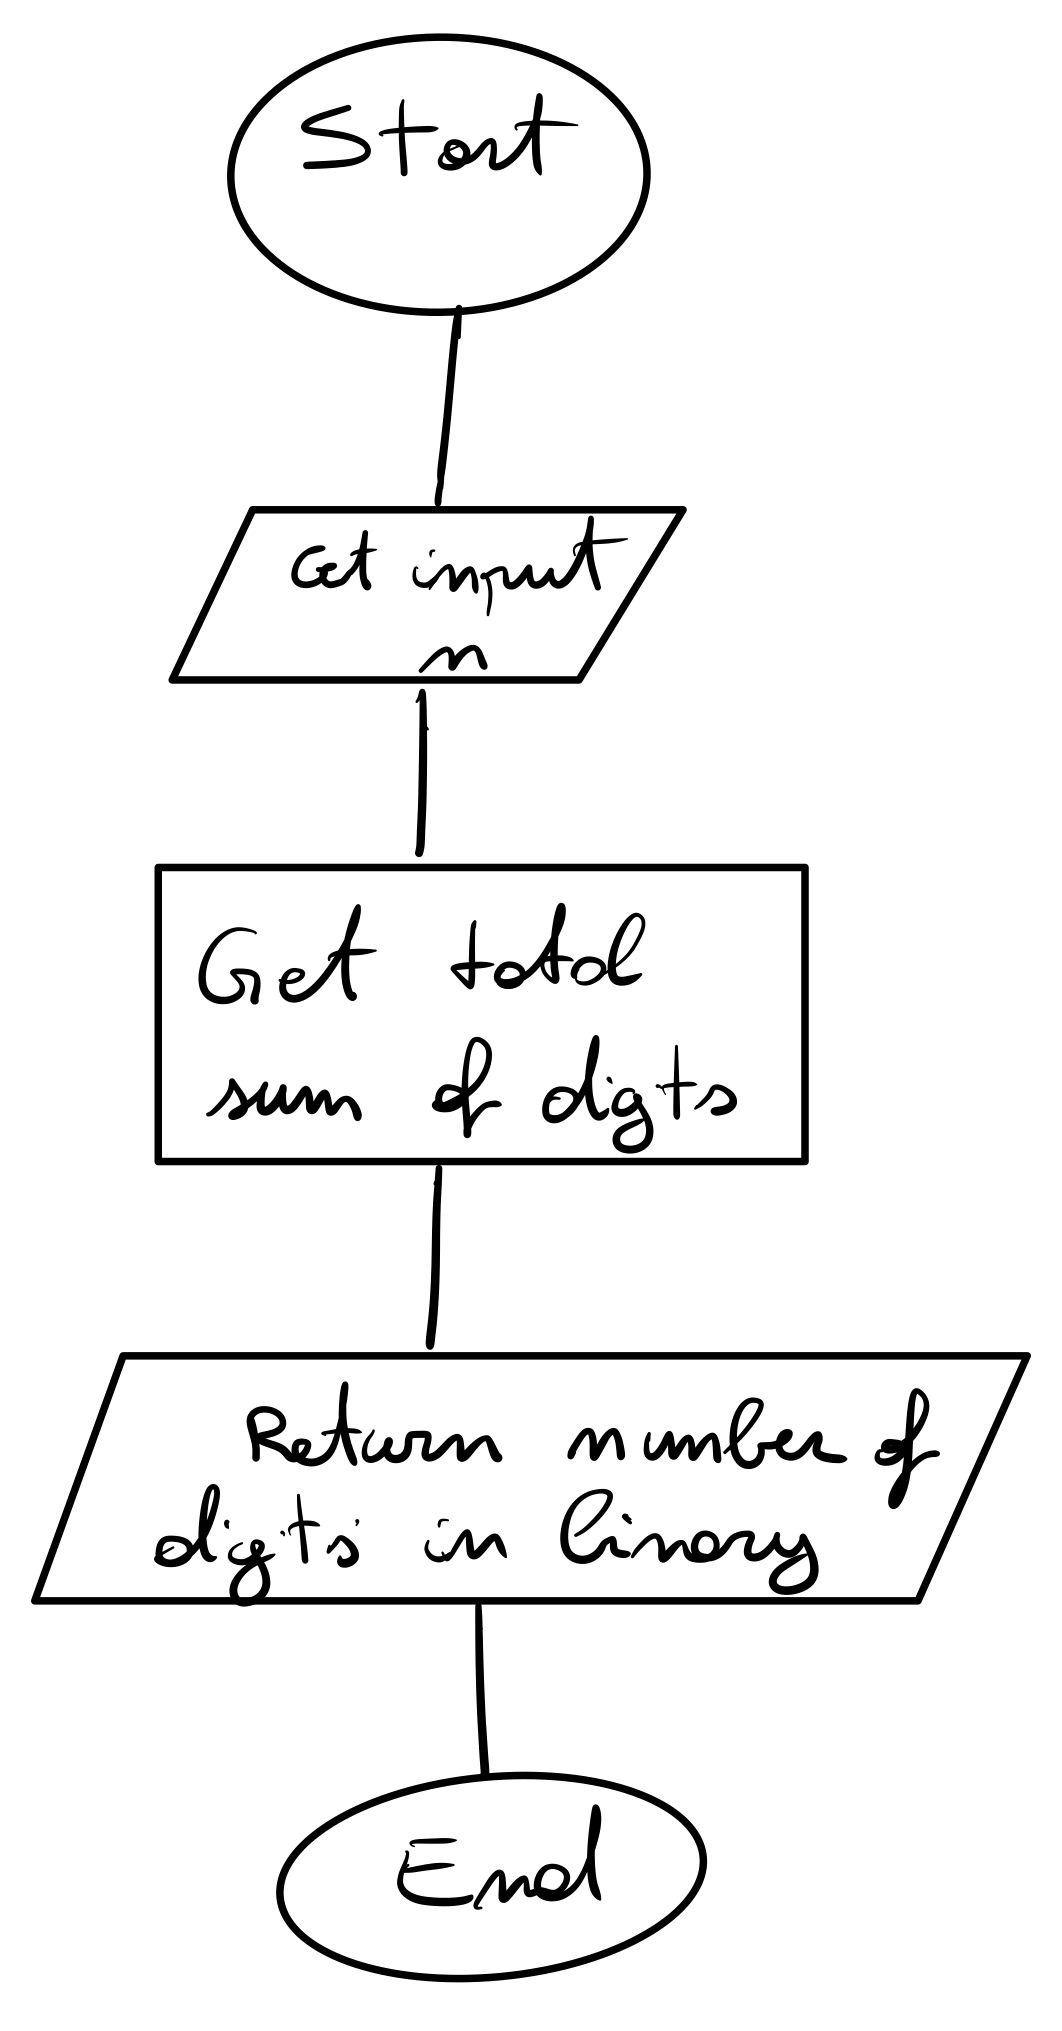 Start
Get input
n
Get total
sum of digts
Return number of
digits in binary
End